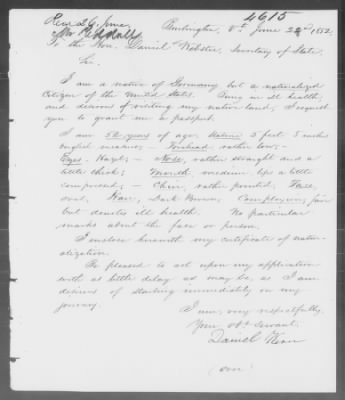 4615
Recd 26 June
Burlington, Vt. June 22nd 1852
To the Hon. Daniel Webster, Secretary of State.
Sir.
I am a native of Germany but a naturalized
Citizen of the United States. Being in ill health,
and desirous of visiting my native land, I request
you to grant me a passport.
I am 52 years of age, Stature 5 feet 5 inches
english measure; – Forehead rather low; –
Eyes. Hazel; – Nose, rather straight and a
little thick; Mouth, medium lips a little
compressed; – Chin, rather pointed, Face,
oval, Hair, Dark Brown, Complexion, fair
but denotes ill health. No particular
marks about the face or person.
I enclose herewith my certificate of natur-
alization.
Be pleased to act upon my application
with as little delay as may be, as I am
desirous of starting immediately on my
journey.
I am, very respectfully,
Your obt servant.
Daniel Kern
(over)